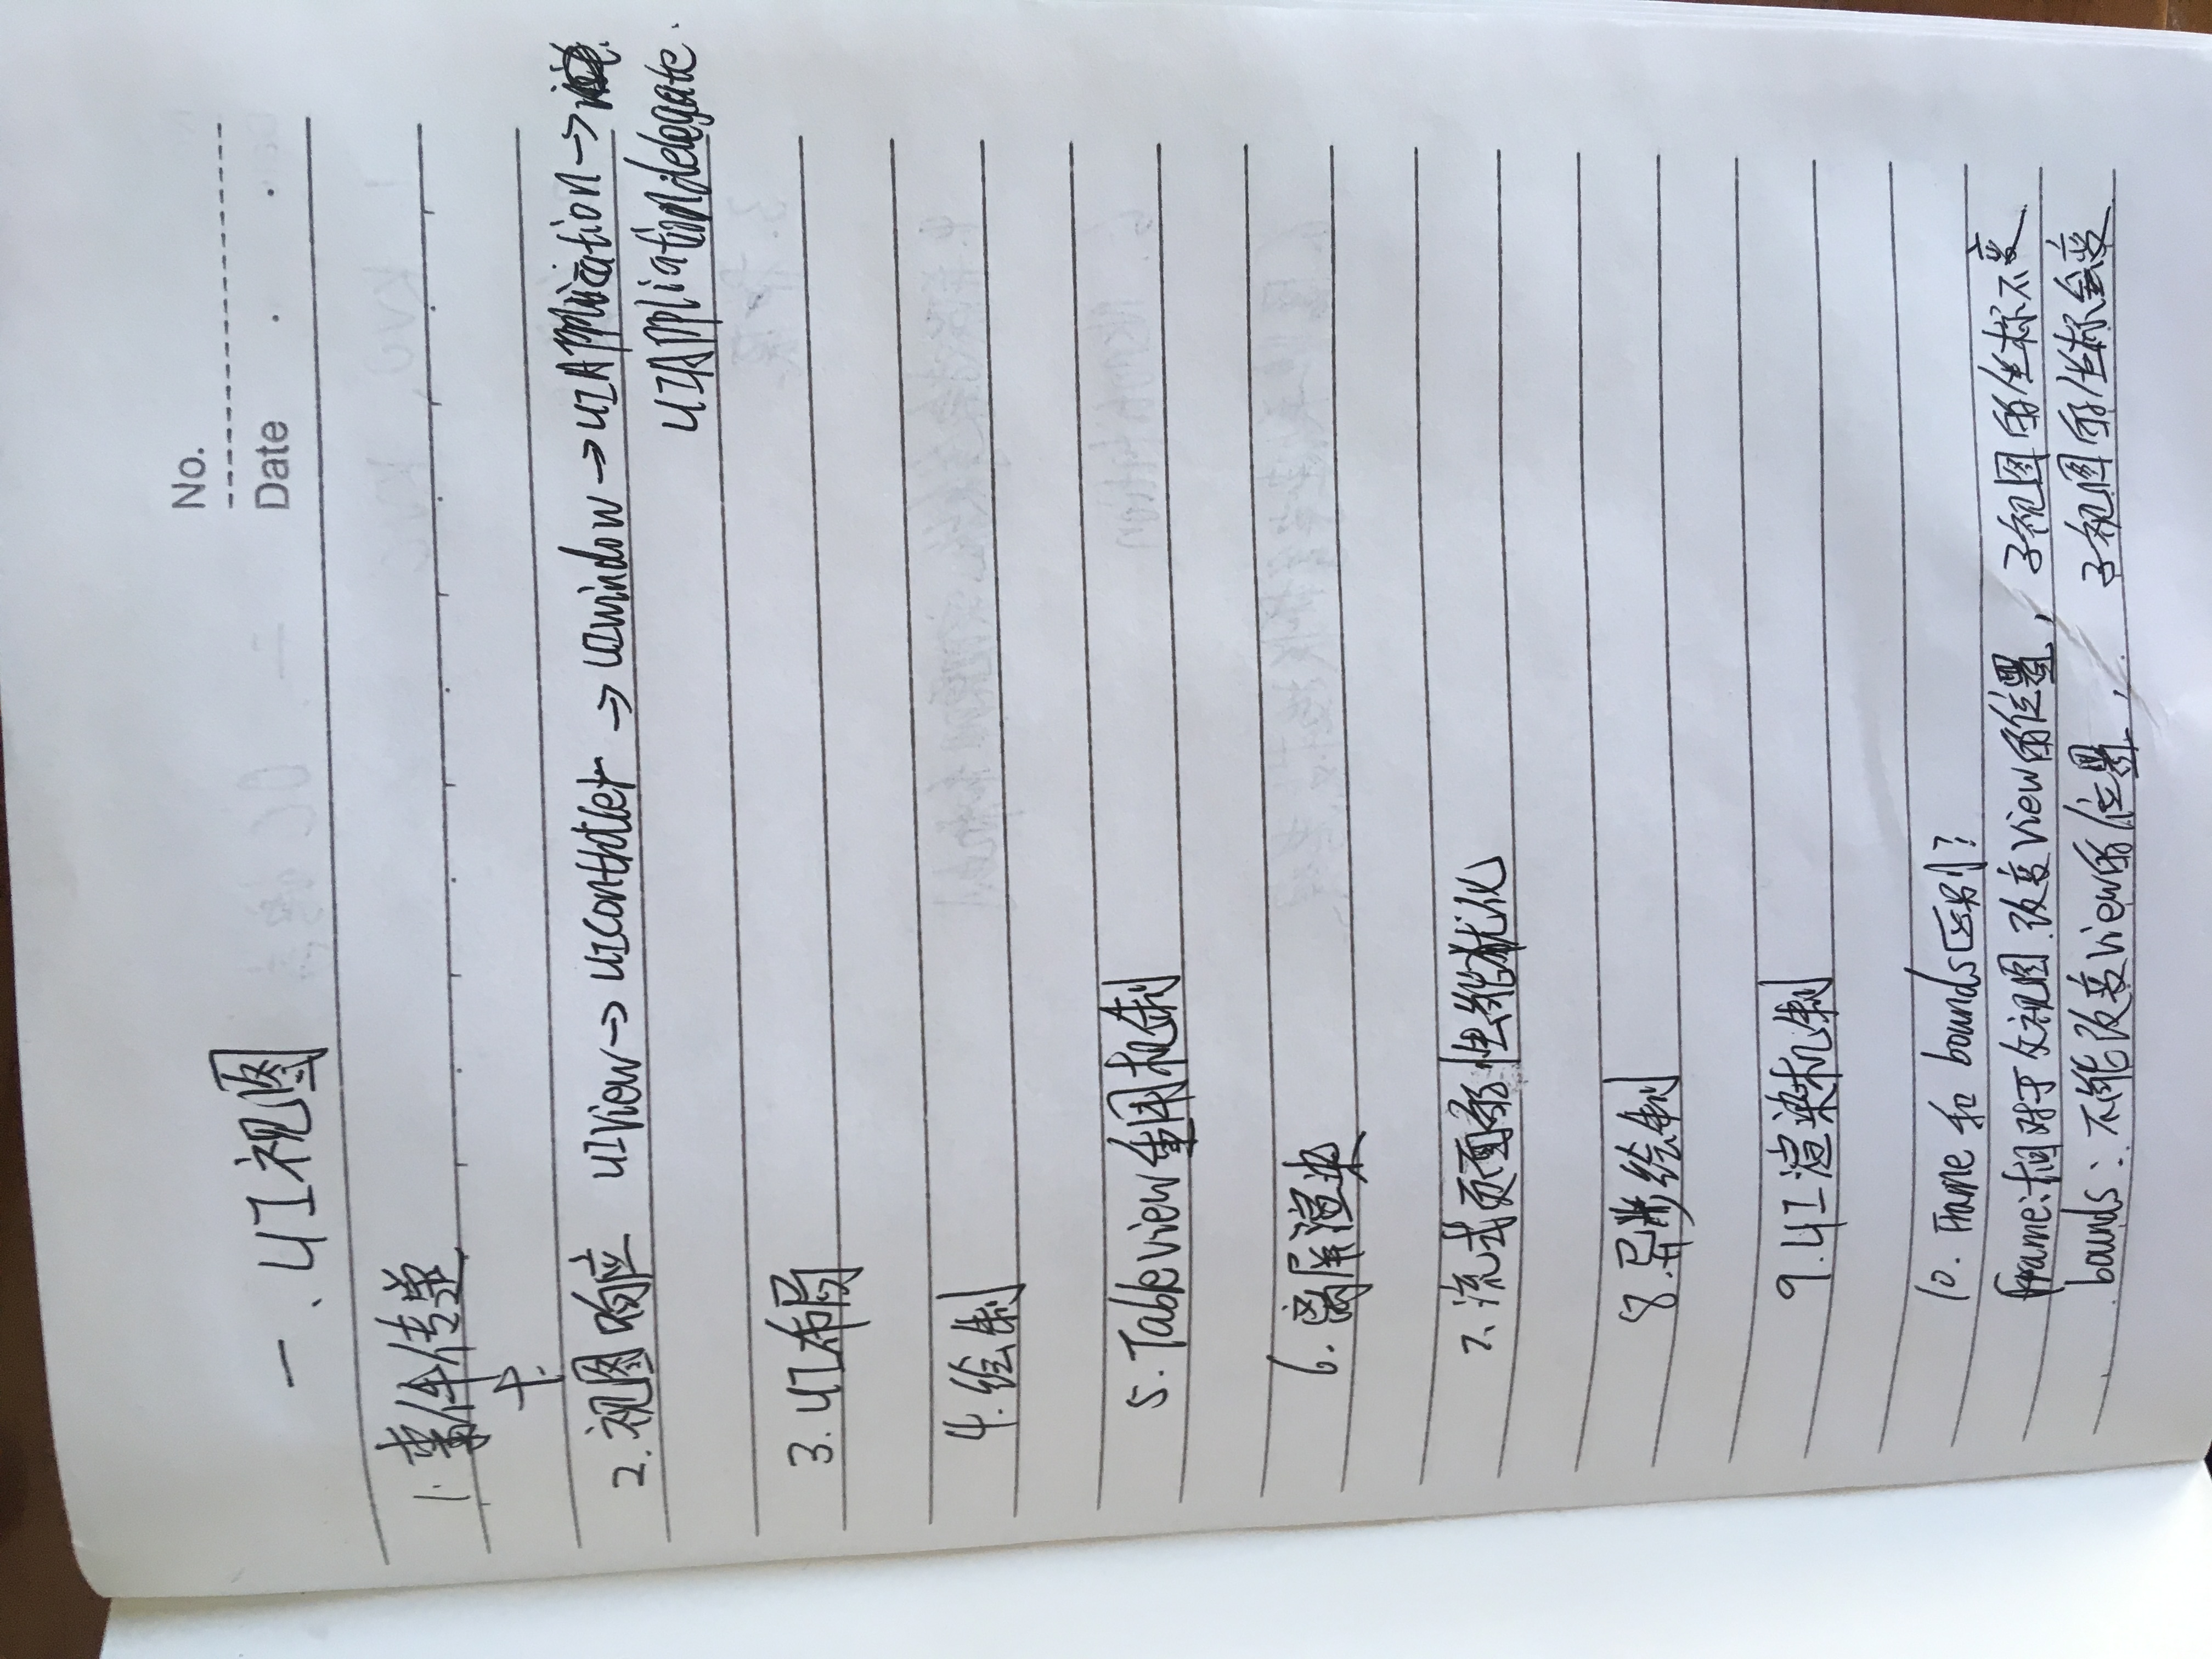 No.
Date
一、UI视图
1.事件传递
卡
2.视图响应 UIView→UIController→UIwindow→UIApplication→
UIAppliationdelegate.
3.UI布局
4.绘制
5.Tableview重用机制
6.离屏渲染
7.流式页面的性能优化
8.异步绘制
9.UI渲染机制
10.Frame和bounds区别?
frame:相对于父视图.改变view的位置,子视图的坐标不变
bounds:不能改变view的位置,子视图的坐标会变